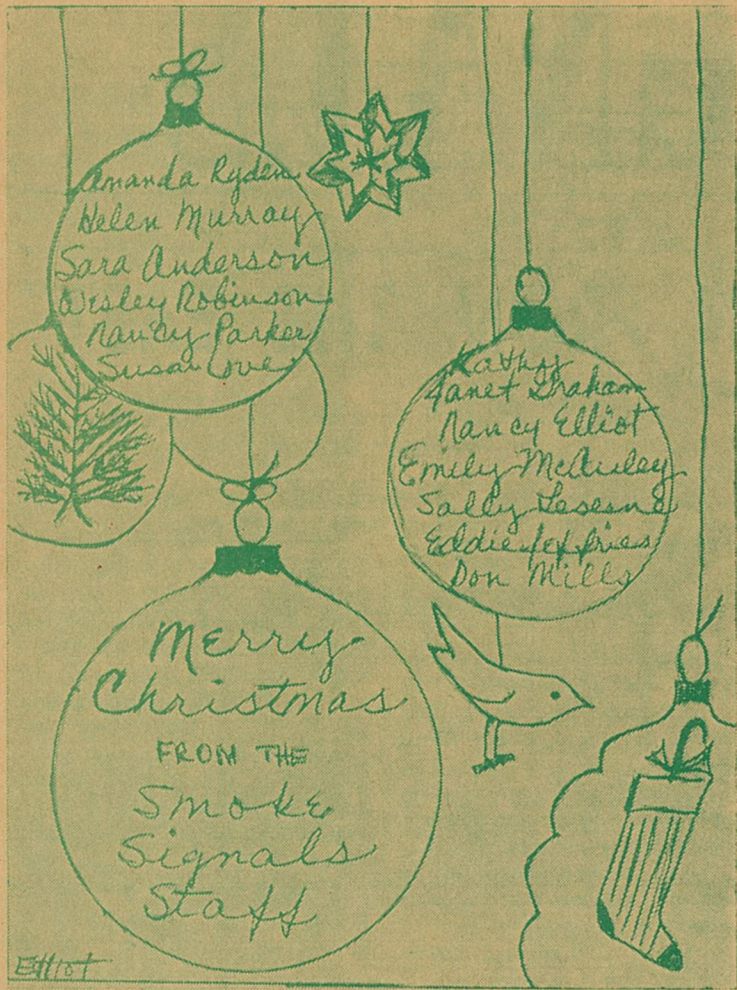 Amanda Ryden
Helen Murray
Sara Anderson
Wesley Robinson
Nancy Parker
Susan Love
Kathy
Janet Graham
Nancy Elliot
Emily McAuley
Sally Lesesne
Eddie Jeffries
Don Mills
Merry
Christmas
FROM THE
Smoke
Signals
Staff
Elliot